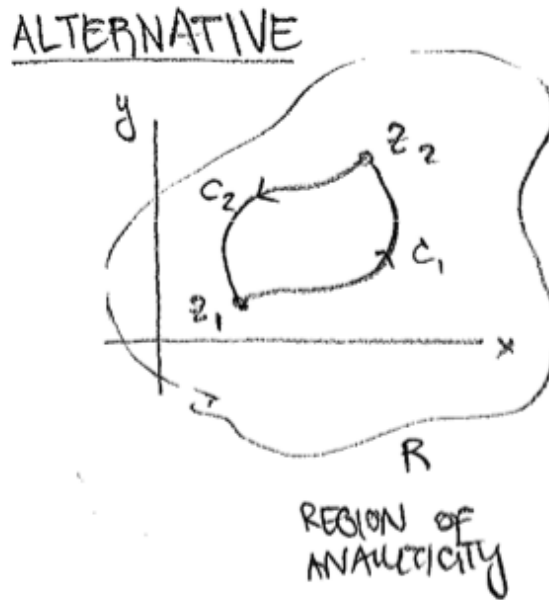 ALTERNATIVE
y
z2
C2
C1
z1
x
R
REGION OF
ANALYTICITY